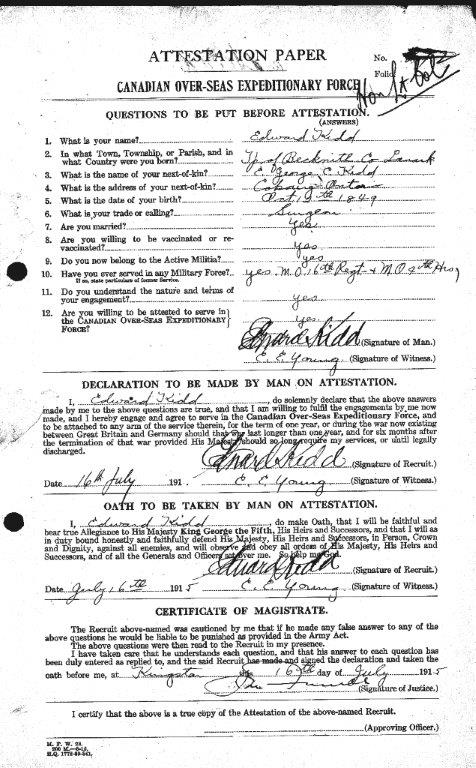 ATTESTATION PAPER
No.
Folio
CANADIAN OVER-SEAS EXPEDITIONARY FORCE
QUESTIONS TO BE PUT BEFORE ATTESTATION.
(ANSWERS)
1. What is your name? Edward Kidd
2. In what Town, Township, or Parish, and in what Country were you born? Tp of Beckwith Co Lanark
3. What is the name of your next-of-kin? E. George C. Kidd
4. What is the address of your next-of-kin? Cobourg Ontario
5. What is the date of your birth? Oct 19th 1849
6. What is your trade or calling? Surgeon
7. Are you married? Yes
8. Are you willing to be vaccinated or re-vaccinated? Yes
9. Do you now belong to the Active Militia? yes
10. Have you ever served in any Military Force? yes. M.O. 16th Regt & M.O. 9th
If so, state particulars of former Service.
11. Do you understand the nature and terms of your engagement? Yes
12. Are you willing to be attested to serve in the CANADIAN OVER-SEAS EXPEDITIONARY FORCE? Yes
Edward Kidd (Signature of Man).
E. E. Young (Signature of Witness).
DECLARATION TO BE MADE BY MAN ON ATTESTATION.
I, Edward Kidd, do solemnly declare that the above answers
made by me to the above questions are true, and that I am willing to fulfil the engagements by me now
made, and I hereby engage and agree to serve in the Canadian Over-Seas Expeditionary Force, and
to be attached to any arm of the service therein, for the term of one year, or during the war now existing
between Great Britain and Germany should that war last longer than one year, and for six months after
the termination of that war provided His Majesty should so long require my services, or until legally
discharged.
Edward Kidd (Signature of Recruit).
Date 16th July 191 . E. E. Young (Signature of Witness)
OATH TO BE TAKEN BY MAN ON ATTESTATION.
I, Edward Kidd, do make Oath, that I will be faithful and
bear true Allegiance to His Majesty King George the Fifth, His Heirs and Successors, and that I will as
in duty bound honestly and faithfully defend His Majesty, His Heirs and Successors, in Person, Crown
and Dignity, against all enemies, and will observe and obey all orders of His Majesty, His Heirs and
Successors, and of all the Generals and Officers set over me. So help me God.
Edward Kidd (Signature of Recruit)
Date July 16th 1915 E. E. Young (Signature of Witness)
CERTIFICATE OF MAGISTRATE.
The Recruit above-named was cautioned by me that if he made any false answer to any of the
above questions he would be liable to be punished as provided in the Army Act.
The above questions were then read to the Recruit in my presence.
I have taken care that he understands each question, and that his answer to each question has
been duly entered as replied to, and the said Recruit has made and signed the declaration and taken the
oath before me, at Kingston this 16th day of July 1915
(Signature of Justice.)
I certify that the above is a true copy of the Attestation of the above-named Recruit.
(Approving Officer.)
M. F. W. 23.
H.Q. 1772-39-841.